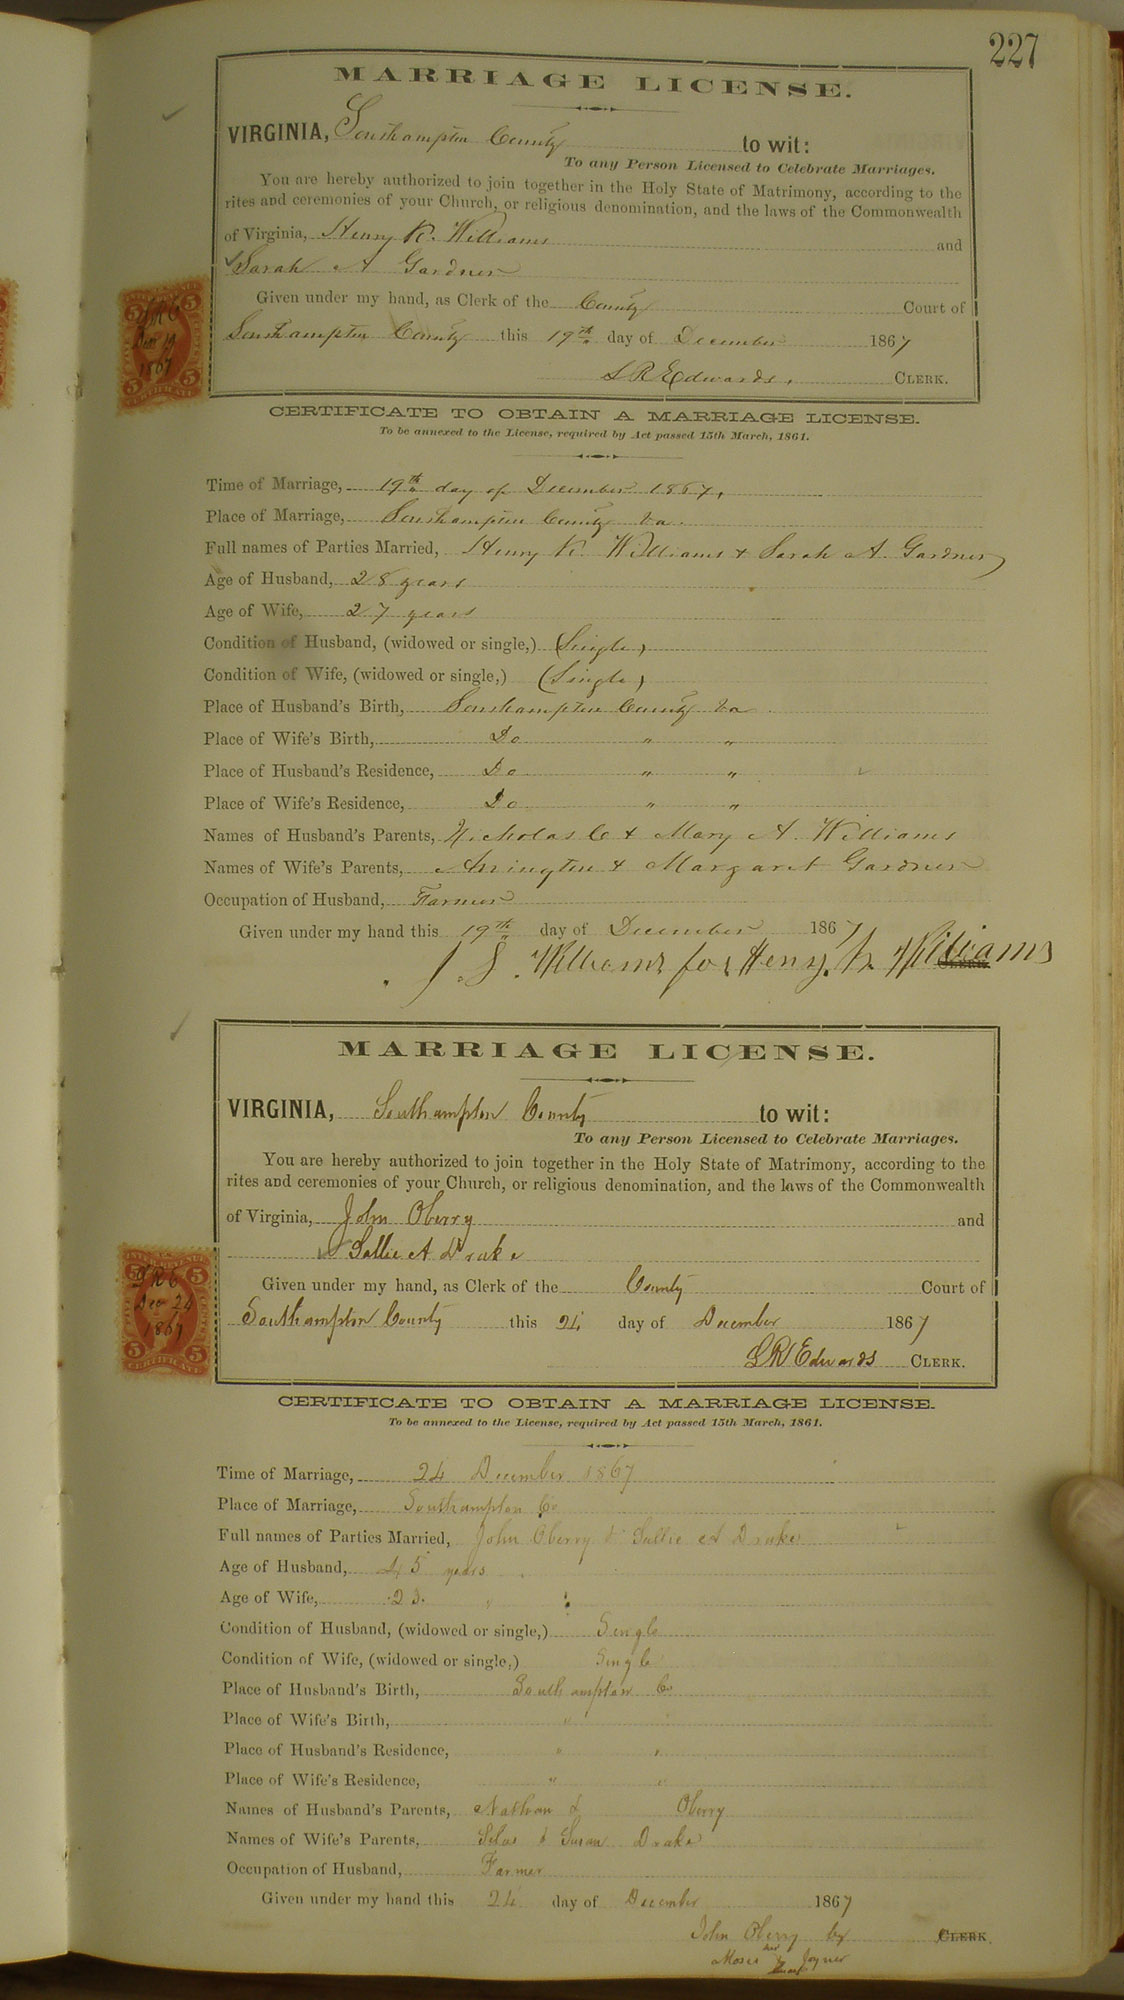 227
MARRIAGE LICENSE.
VIRGINIA, Southampton County to wit:
To any Person Licensed to Celebrate Marriages.
You are hereby authorized to join together in the Holy State of Matrimony, according to the
rites and ceremonies of your Church, or religious denomination, and the laws of the Commonwealth
of Virginia, Henry K. Williams and
Sarah A Gardner
Given under my hand, as Clerk of the County Court of
Southampton County this 19th day of December 1867
L R Edwards, CLERK.
LRE
Dec 19
1867
CERTIFICATE TO OBTAIN A MARRIAGE LICENSE.
To be annexed to the License, required by Act passed 15th March, 1861.
Time of Marriage, 19th day of December 1867,
Place of Marriage, Southampton County Va.
Full names of Parties Married, Henry K. Williams + Sarah A. Gardner
Age of Husband, 28 years
Age of Wife, 27 years
Condition of Husband, (widowed or single,) (Single)
Condition of Wife, (widowed or single,) (Single)
Place of Husband's Birth, Southampton County Va
Place of Wife's Birth, Do " "
Place of Husband's Residence, Do " "
Place of Wife's Residence, Do " "
Names of Husband's Parents, Nicholas C + Mary A. Williams
Names of Wife's Parents, Arrington + Margaret Gardner
Occupation of Husband, Farmer
Given under my hand this 19th day of December 1867
J. S. Williams for Henry K Williams CLERK.
MARRIAGE LICENSE.
VIRGINIA, Southampton County to wit:
To any Person Licensed to Celebrate Marriages.
You are hereby authorized to join together in the Holy State of Matrimony, according to the
rites and ceremonies of your Church, or religious denomination, and the laws of the Commonwealth
of Virginia, John Oberry and
Sallie A Drake
Given under my hand, as Clerk of the County Court of
Southampton County this 24 day of December 1867
L R Edwards CLERK.
LRE
Dec 24
1867
CERTIFICATE TO OBTAIN A MARRIAGE LICENSE.
To be annexed to the License, required by Act passed 15th March, 1861.
Time of Marriage, 24 December 1867
Place of Marriage, Southampton Co
Full names of Parties Married, John Oberry & Sallie A Drake
Age of Husband, 45 years
Age of Wife, 23 "
Condition of Husband, (widowed or single,) Single
Condition of Wife, (widowed or single,) Single
Place of Husband's Birth, Southampton Co
Place of Wife's Birth, " "
Place of Husband's Residence, " "
Place of Wife's Residence, " "
Names of Husband's Parents, Nathan & Oberry
Names of Wife's Parents, Silas & Susan Drake
Occupation of Husband, Farmer
Given under my hand this 24 day of December 1867
John Oberry by CLERK.
Moses Joyner